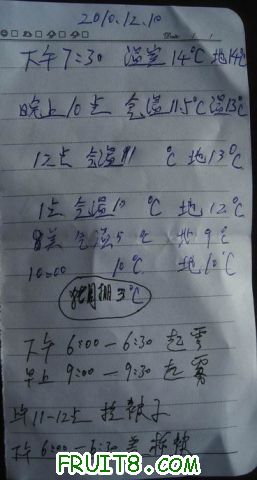 2010.12.10
Date
下午7:30 温室14℃ 地14℃
晚上10点 气温11.5℃ 温13℃
12点 气温11 ℃ 地13℃
1点 气温10 ℃ 地12℃
8点 气温5 ℃ 地9℃
10:00 10℃ 地10℃
棚 3℃
下午6:00—6:30 起雾
早上9:00—9:30 起雾
11—12点 拉
下午6:00—6:30
FRUIT8.COM